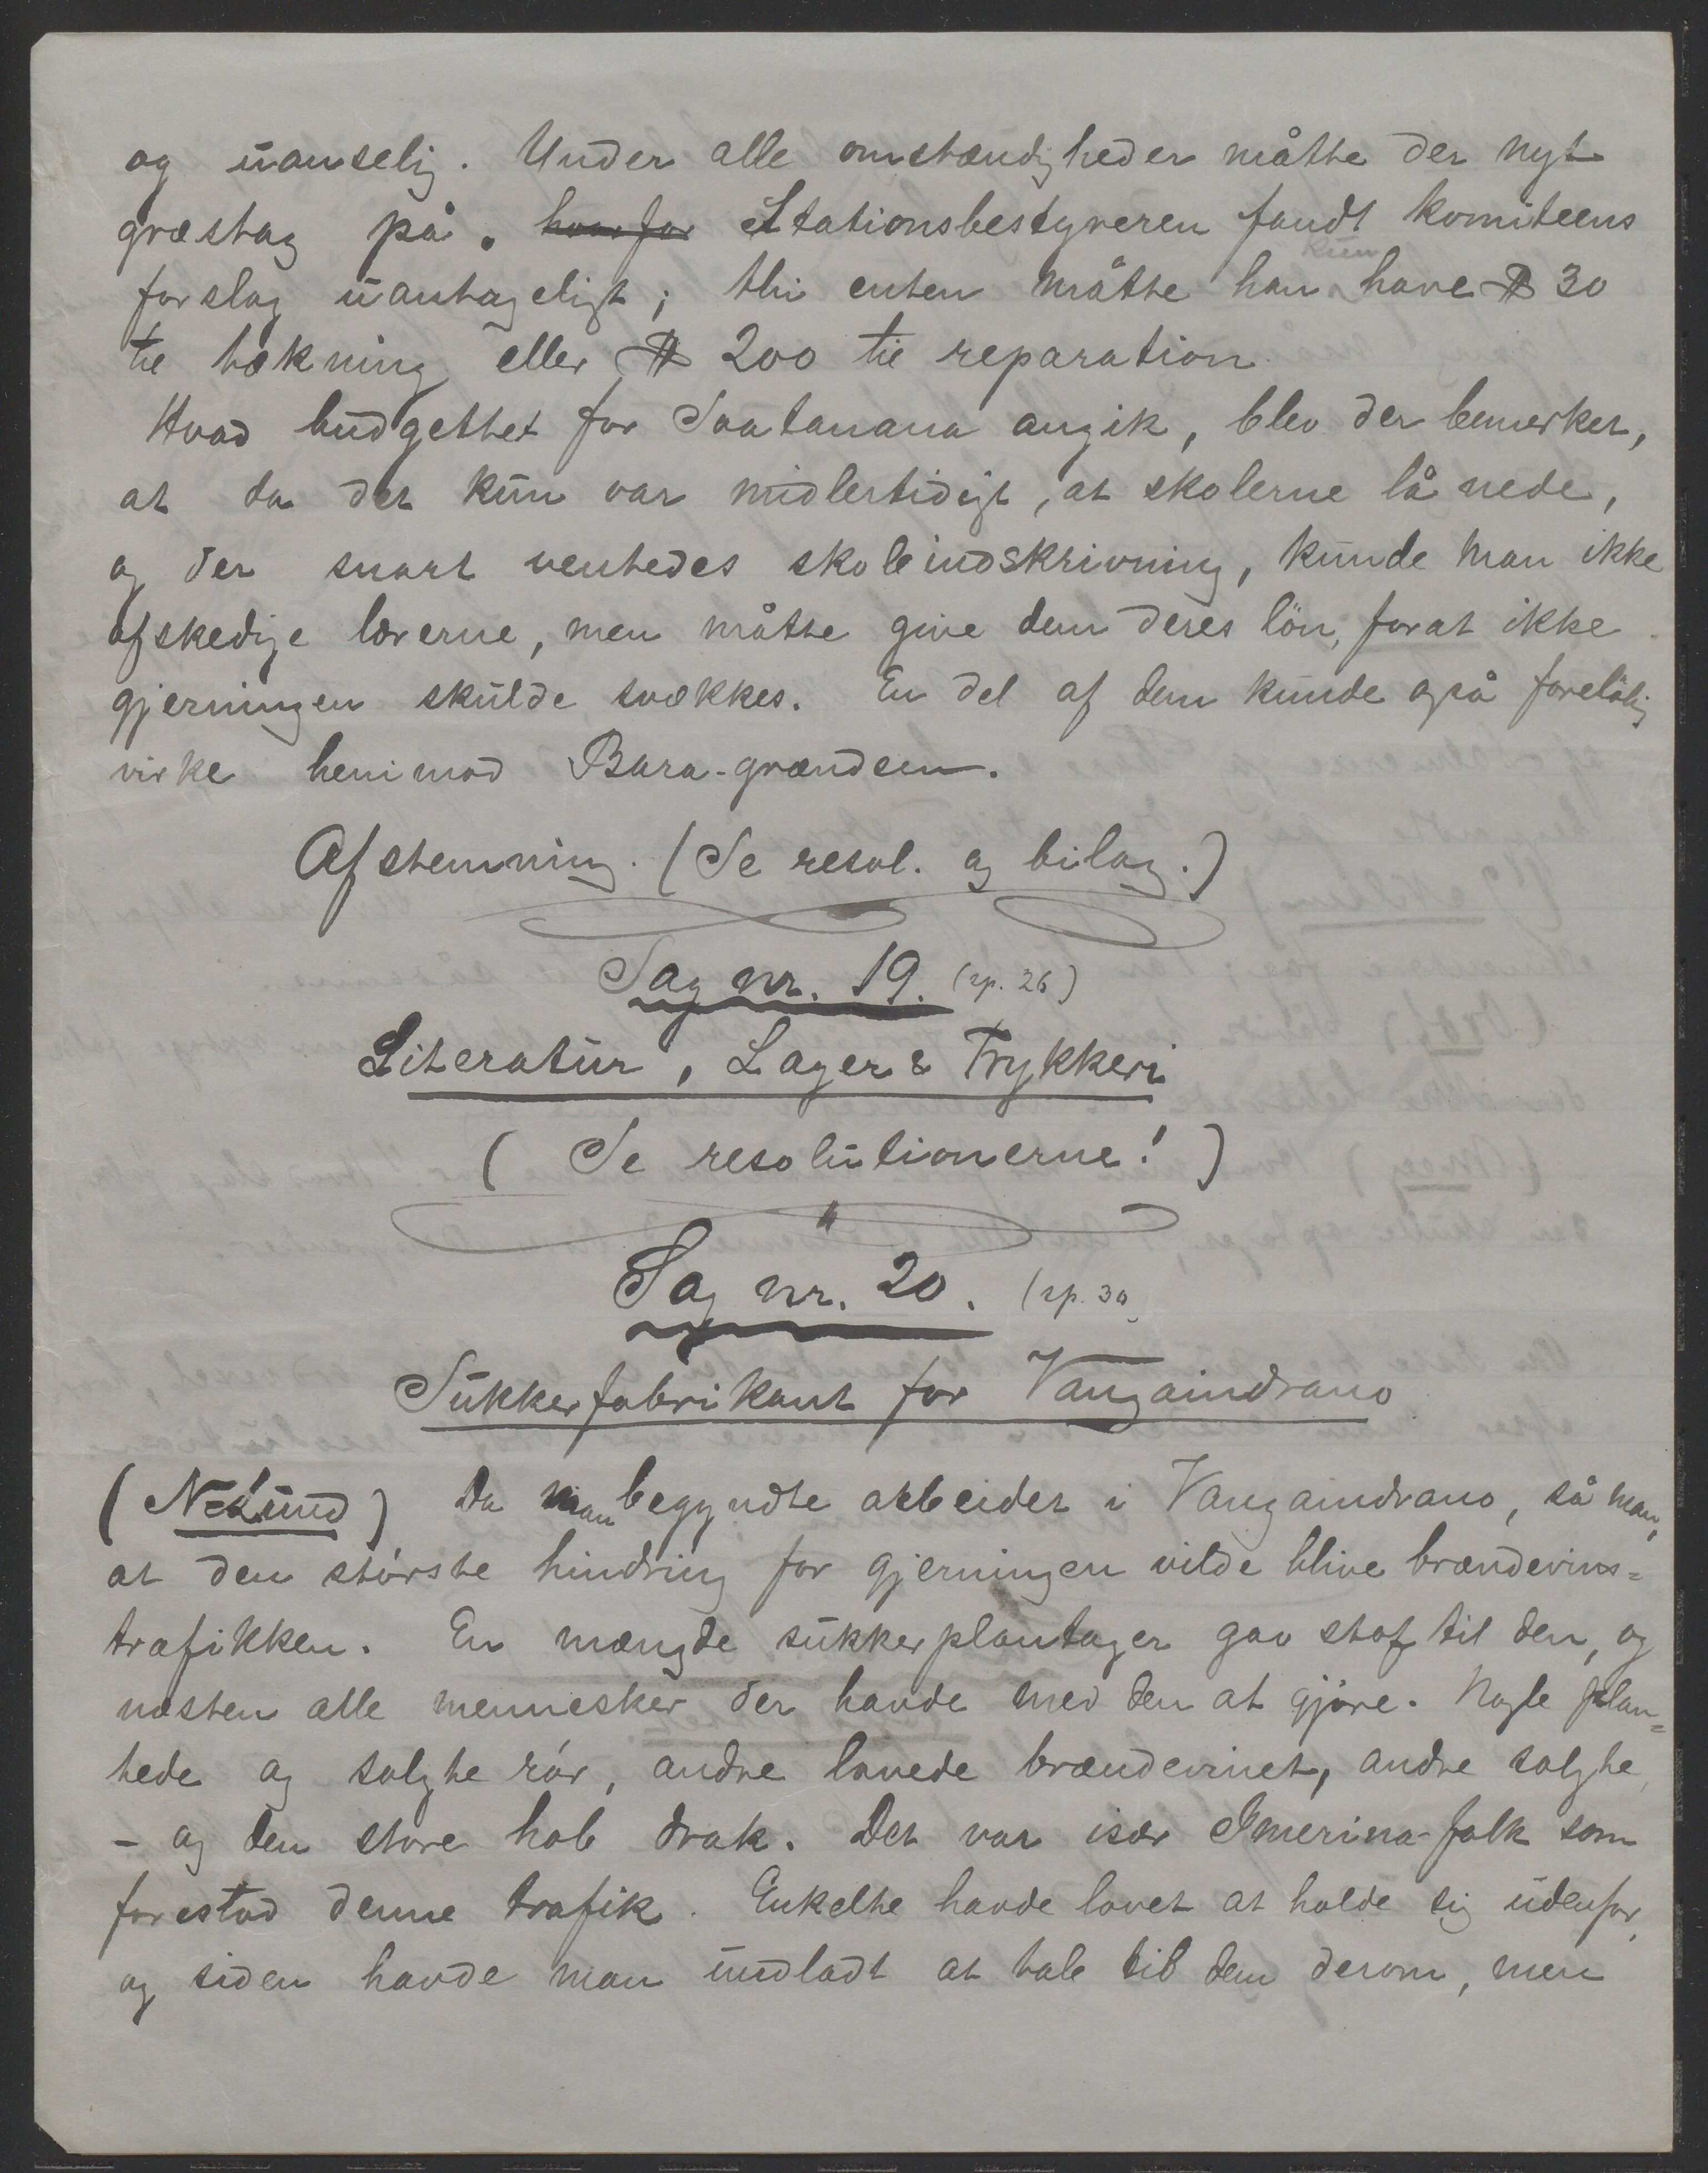 og uanselig. Under alle omstændigheder måtte der nyt
græstag på. hvorfor Stationsbestyreren fandt komiteens
forslag uantageligt; thi enten måtte han kun have $ 30
til tækning eller $ 200 til reparation.
Hvad budgettet for Soatanana angik, blev der bemerket,
at da det kun var midlertidigt, at skolerne lå nede,
og der snart ventedes skoleindskrivning, kunde man ikke
afskedige lærerne, men måtte give dem deres lön, forat ikke
gjerningen skulde svækkes. En del af dem kunde også foreløbig
virke henimod Bara-grændsen.
Afstemning. (Se resol. og bilag.)
Sag nr. 19. (sp. 26)
Literatur, Lager & Trykkeri
( Se resolutionerne! )
Sag nr. 20. (sp. 30
Sukkerfabrikant for Vangaindrano
(Nilund) Da man begyndte arbeidet i Vangaindrano, så man,
at den störste hindring for gjerningen vilde blive brændevins=
trafikken. En mængde sukkerplantager gav stof til den, og
næsten alle mennesker der havde med den at gjöre. Nogle plan=
tede og solgte rör, andre lavede brændevinet, andre solgte,
- og den store hob drak. Det var især Imerina-folk som
forestod denne trafik. Enkelte havde lovet at holde sig udenfor,
og siden havde man undladt at tale til dem derom, men